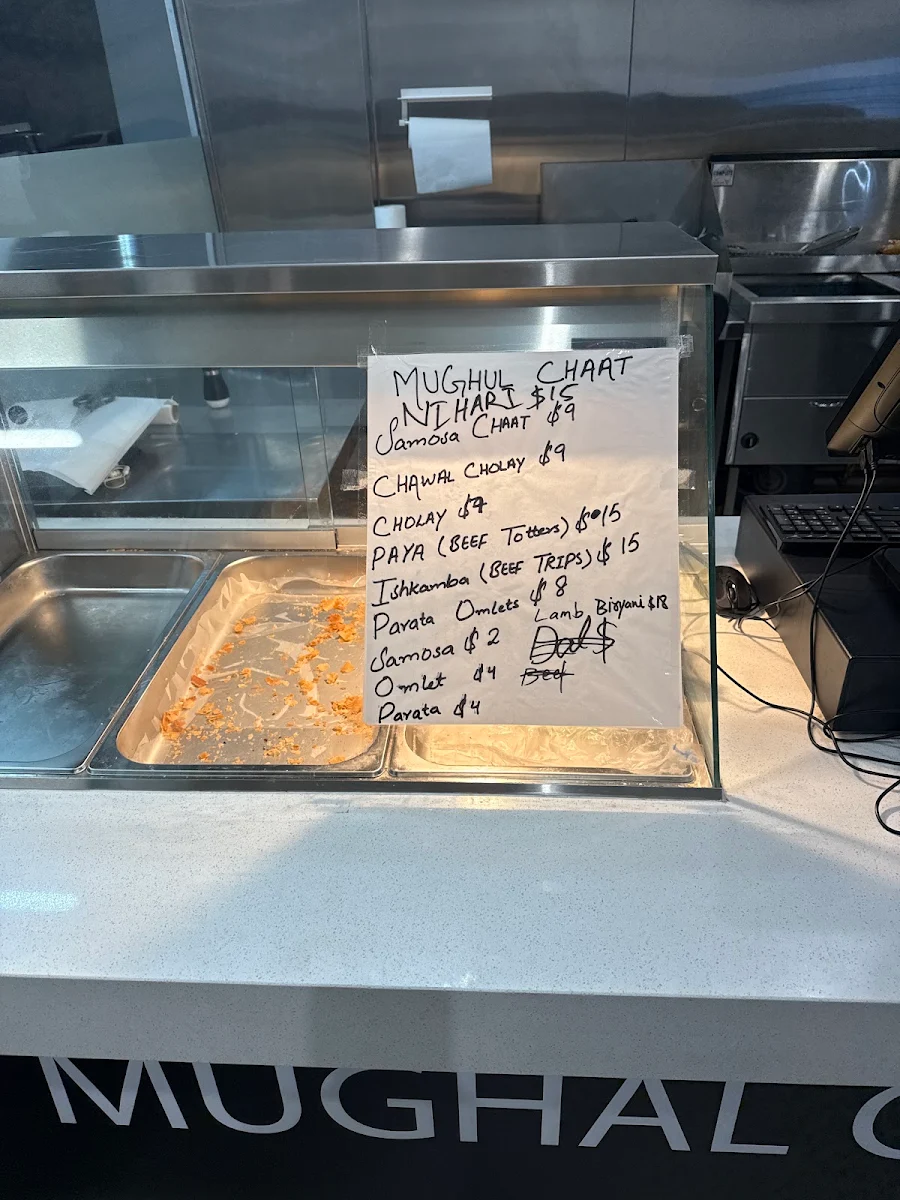 MUGHUL CHAAT
NIHARI $15
Samosa CHAAT $9
CHAWAL CHOLAY $9
CHOLAY
PAYA (BEEF Totters) $15
Ishkamba (BEEF TRIPS) $15
Parata Omlets $8
Lamb Biryani $18
Samosa $2
Dal $
Omlet $4
Beef
Parata $4
MUGHAL